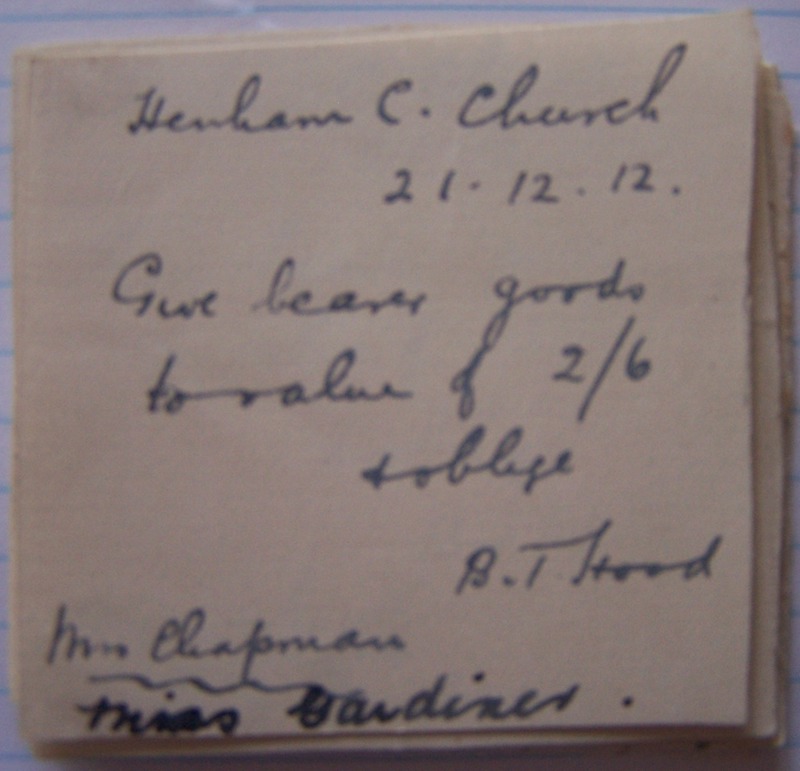 Henham C. Church
21.12.12.
Give bearer goods
to value of 2/6
& oblige
B.T. Hood
Mrs Chapman
Miss Gardiner.